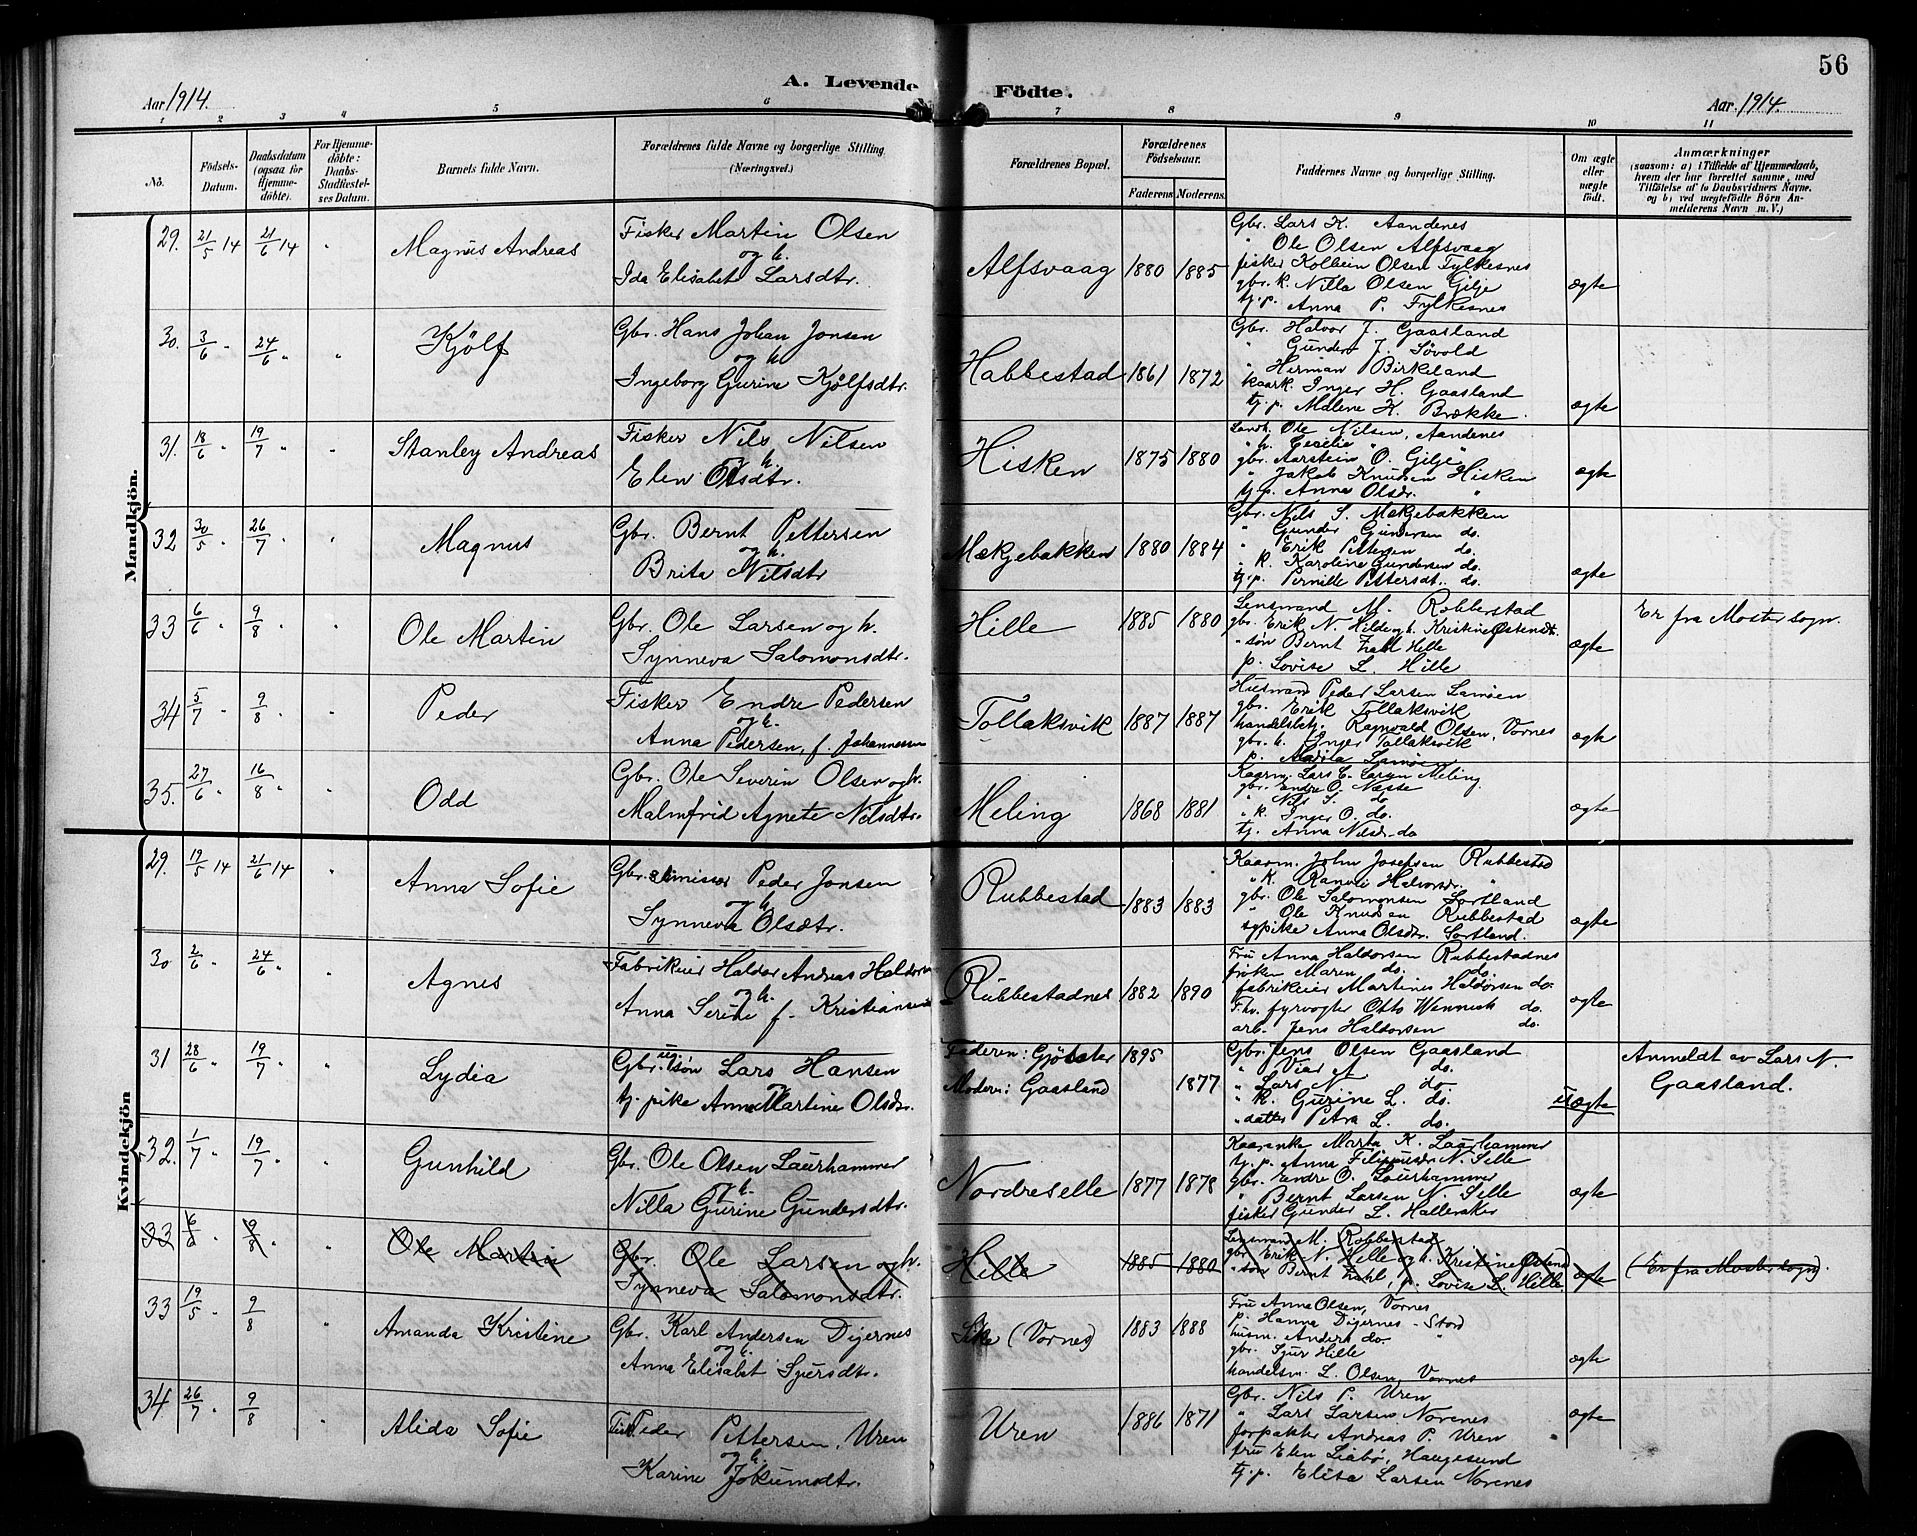 56
A. Levende Födte.
Aar 1914.
Aar 1914.
1 2 3 4 5 6 7 8 9 10 11
No.
Födsels-Datum.
Daabsdatum (ogsaa for Hjemmedöbte).
For Hjemmedöbte: Daabs-Stadfæstelses Datum.
Barnets fulde Navn.
Forældrenes fulde Navne og borgerlige Stilling (Næringsvei.)
Forældrenes Bopæl.
Forældrenes Födselsaar.
Faderens
Moderens
Faddernes Navne og borgerlige Stilling.
Om ægte eller uægte födt.
Anmærkninger
(saasom: a) i Tilfælde af Hjemmedaab, hvem der har forrettet samme, med Tilföielse af to Daabsvidners Navne, og b) ved uægtefödte Börn Anmelderens Navn m. V.)
Mandkjön.
29. 21/5 14 21/6 14 " Magnus Andreas
Fisker Martin Olsen
og h.
Ida Elisabet Larsdtr.
Alfsvaag 1880 1885
Gbr. Lars K. Aandenes
" Ole Olsen Alfsvaag
fisker Kolbein Olsen Fylkesnes
gbr. k. Nilla Olsen Gilje
tj. p. Anna P. Fylkesnes
ægte
30. 3/6 " 24/6 " " Kjölf
Gbr. Hans Johan Jonsen
og h.
Ingeborg Gurine Kjölfsdtr.
Habbestad 1861 1872
Gbr. Halvor J. Gaasland
" Gunder J. Lövold
" Herman Birkeland
kaark. Inger H. Gaasland
tj. p. Malene K. Brække.
ægte
31. 18/6 " 19/7 " " Stanley Andreas
Fisker Nils Nilsen
og h.
Elen Olsdtr.
Hisken 1875 1880
Landh. Ole Nilsen, Aandenes
" h. Cecilie "
gbr. Aarstein O. Gilje
" Jakob Knutsen Hisken
tj. p. Anna Olsdr. "
ægte
32 30/5 " 26/7 " " Magnus
Gbr. Bernt Pettersen
og h.
Brita Nilsdtr
Mækjebakken 1880 1884
Gbr. Nils S. Mækjebakken
" Gunder Gundersen do.
" Erik Pettersen do.
" k. Karoline Gundersen do.
tj. p. Pernille Pettersdt. do.
ægte
33 6/6 " 9/8 " " Ole Martin
Gbr. Ole Larsen og h.
Synneva Salomonsdtr.
Hille 1885 1880
Lensmand M. Robberstad
gbr. Erik N. Hille og h. Kristine Østensdt.
" søn Bernt Zahl Hille
p. Lovise L. Hille
ægte
Er fra Moster sogn.
34 5/7 " 9/8 " " Peder
Fisker Endre Pedersen
og h.
Anna Pedersen, f. Johannessen
Tollaksvik 1887 1887
Husmand Peder Larsen Lamöen
gbr. Erik Tollaksvik
handelsbetj. Ragnvald Olsen, Vornes
gbr. h. Inger Tollaksvik
p. Lamöen
ægte
35. 27/6 " 16/8 " " Odd
Gbr. Ole Severin Olsen og h.
Malmfrid Agnete Nilsdtr.
Meling 1868 1881
Kaarm. Lars E. Larsen Meling.
gbr. Endre O. Næsse
" Nils S. do
" k. Inger O. do.
tj. Anna Nilsdr. do
ægte
Kvindekjön
29. 19/5 14 21/6 14 " Anna Sofie
Gbr. Peder Jonsen
og h.
Synneva Olsdtr.
Rubbestad 1883 1883
Kaarm. John Josefsen Rubbestad
" k. Ranvei Halvorsdr. "
gbr. Ole Salomonsen Sortland
" Ole Knudsen Rubbestad
sypike Anna Olsdr. Sortland.
ægte
30 2/6 " 24/6 " " Agnes
Fabrikeier Haldor Andreas Haldorsen
og h.
Anna Serine f. Kristiansen
Rubbestadnes 1882 1890
Fru Anna Haldorsen Rubbestadnes
frøken Maren do. do.
fabrikeier Martines Haldorsen do.
F. hv. fyrvogter Otto Wenneck do.
arb. Jens Haldorsen do.
ægte
31 28/6 " 19/7 " " Lydia
Gbr. søn Lars Hansen
og
tj. pike Anna Martine Olsdr.
Faderen: Gjötester 1895
Modern: Gaasland 1877
Gbr. Jens Olsen Gaasland
" Viar N do.
" Lars N do.
" k. Gurine L. do.
" datter Petra L. do.
uægte
Anmeldt av Lars N.
Gaasland.
32. 1/7 19/7 " " Gunhild
Gbr. Ole Olsen Laurhammer
og h.
Nilla Gurine Gundersdtr.
Nordreselle 1877 1878
Kaarenke Marta K. Laurhammer
tj. p. Anna Filippusdr. N. Selle
Gbr. Endre O. Laurhammer
" Bernt Larsen N. Selle
fisker Gunder L. Halleraker
ægte
33 6/6 9/8 " " Ole Martin
Gbr. Ole Larsen og h.
Synneva Salomonsdtr.
Hille 1885 1880
Lensmand M. Robberstad
gbr. Erik N. Hille og h. Kristine Østensd
" søn Bernt Zahl, p. Lovise L. Hille.
ægte
(Er fra Moster sogn).
33 19/5 9/8 " Amanda Kristine
Gbr. Karl Andersen Digernes
og h.
Anna Elisabet Sjursdtr.
(Vornes) 1883 1888
Fru Anna Olsen, Vornes
p. Hanna Digernes - Stord
husm. Anders do. "
gbr. Sjur Hille
handelsm. L. Olsen, Vornes
ægte
34 26/7 " 9/8 " Alida Sofie
Peder Pettersen, Uren
og h.
Karine Jokumsdtr.
Uren 1886 1871
Gbr. Nils P. Uren
" Lars Larsen Norenes
forpakter Andreas P. Uren
fru Elen Liabø, Haugesund
tj. p. Elisa Larsen Norenes
ægte